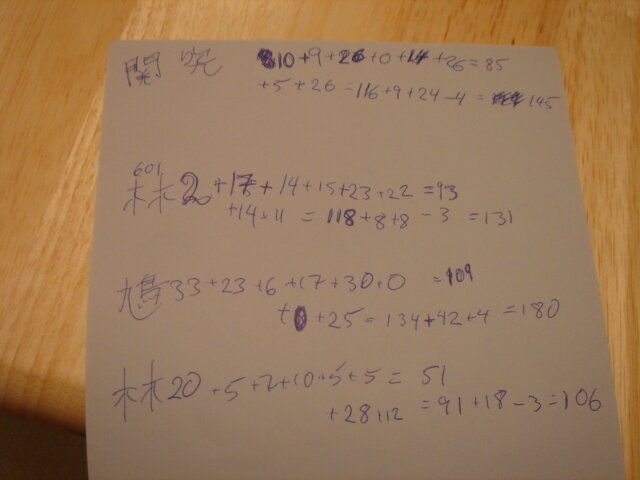 10+9+26+0+14+26=85
+5+26=116+9+24-4=145
601
林2+17+14+15+23+22=93
+14+11=118+8+8-3=131
鳩33+23+6+17+30+0=109
+0+25=134+42+4=180
林20+5+7+10+5+5=51
+28+12=91+18-3=106